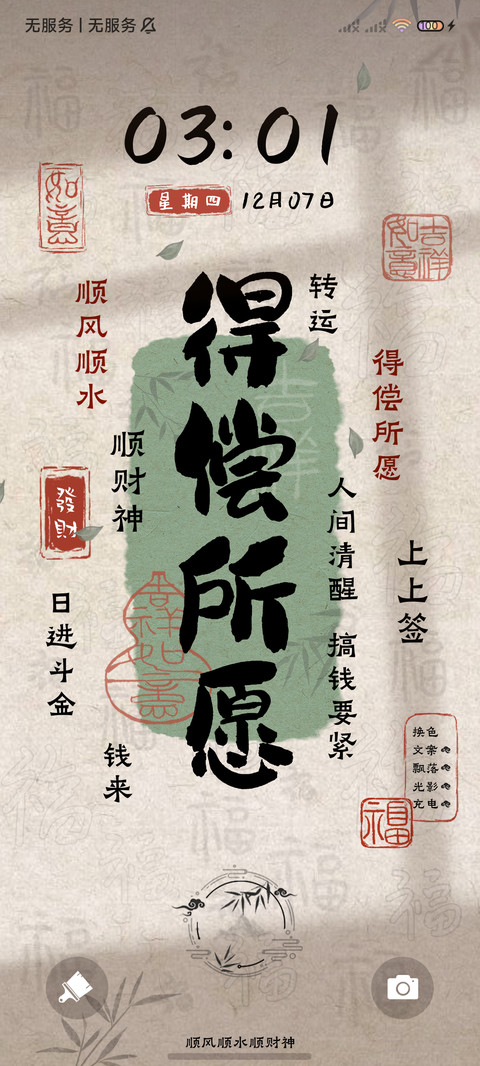 无服务 | 无服务
100
03:01
星期四 12月07日
如意
吉祥如意
顺风顺水
得偿所愿
转运
得偿所愿
顺财神
發財
人间清醒 搞钱要紧
上上签
日进斗金
吉祥如意
钱来
换色
文案
飘落
光影
充电
福
顺风顺水顺财神